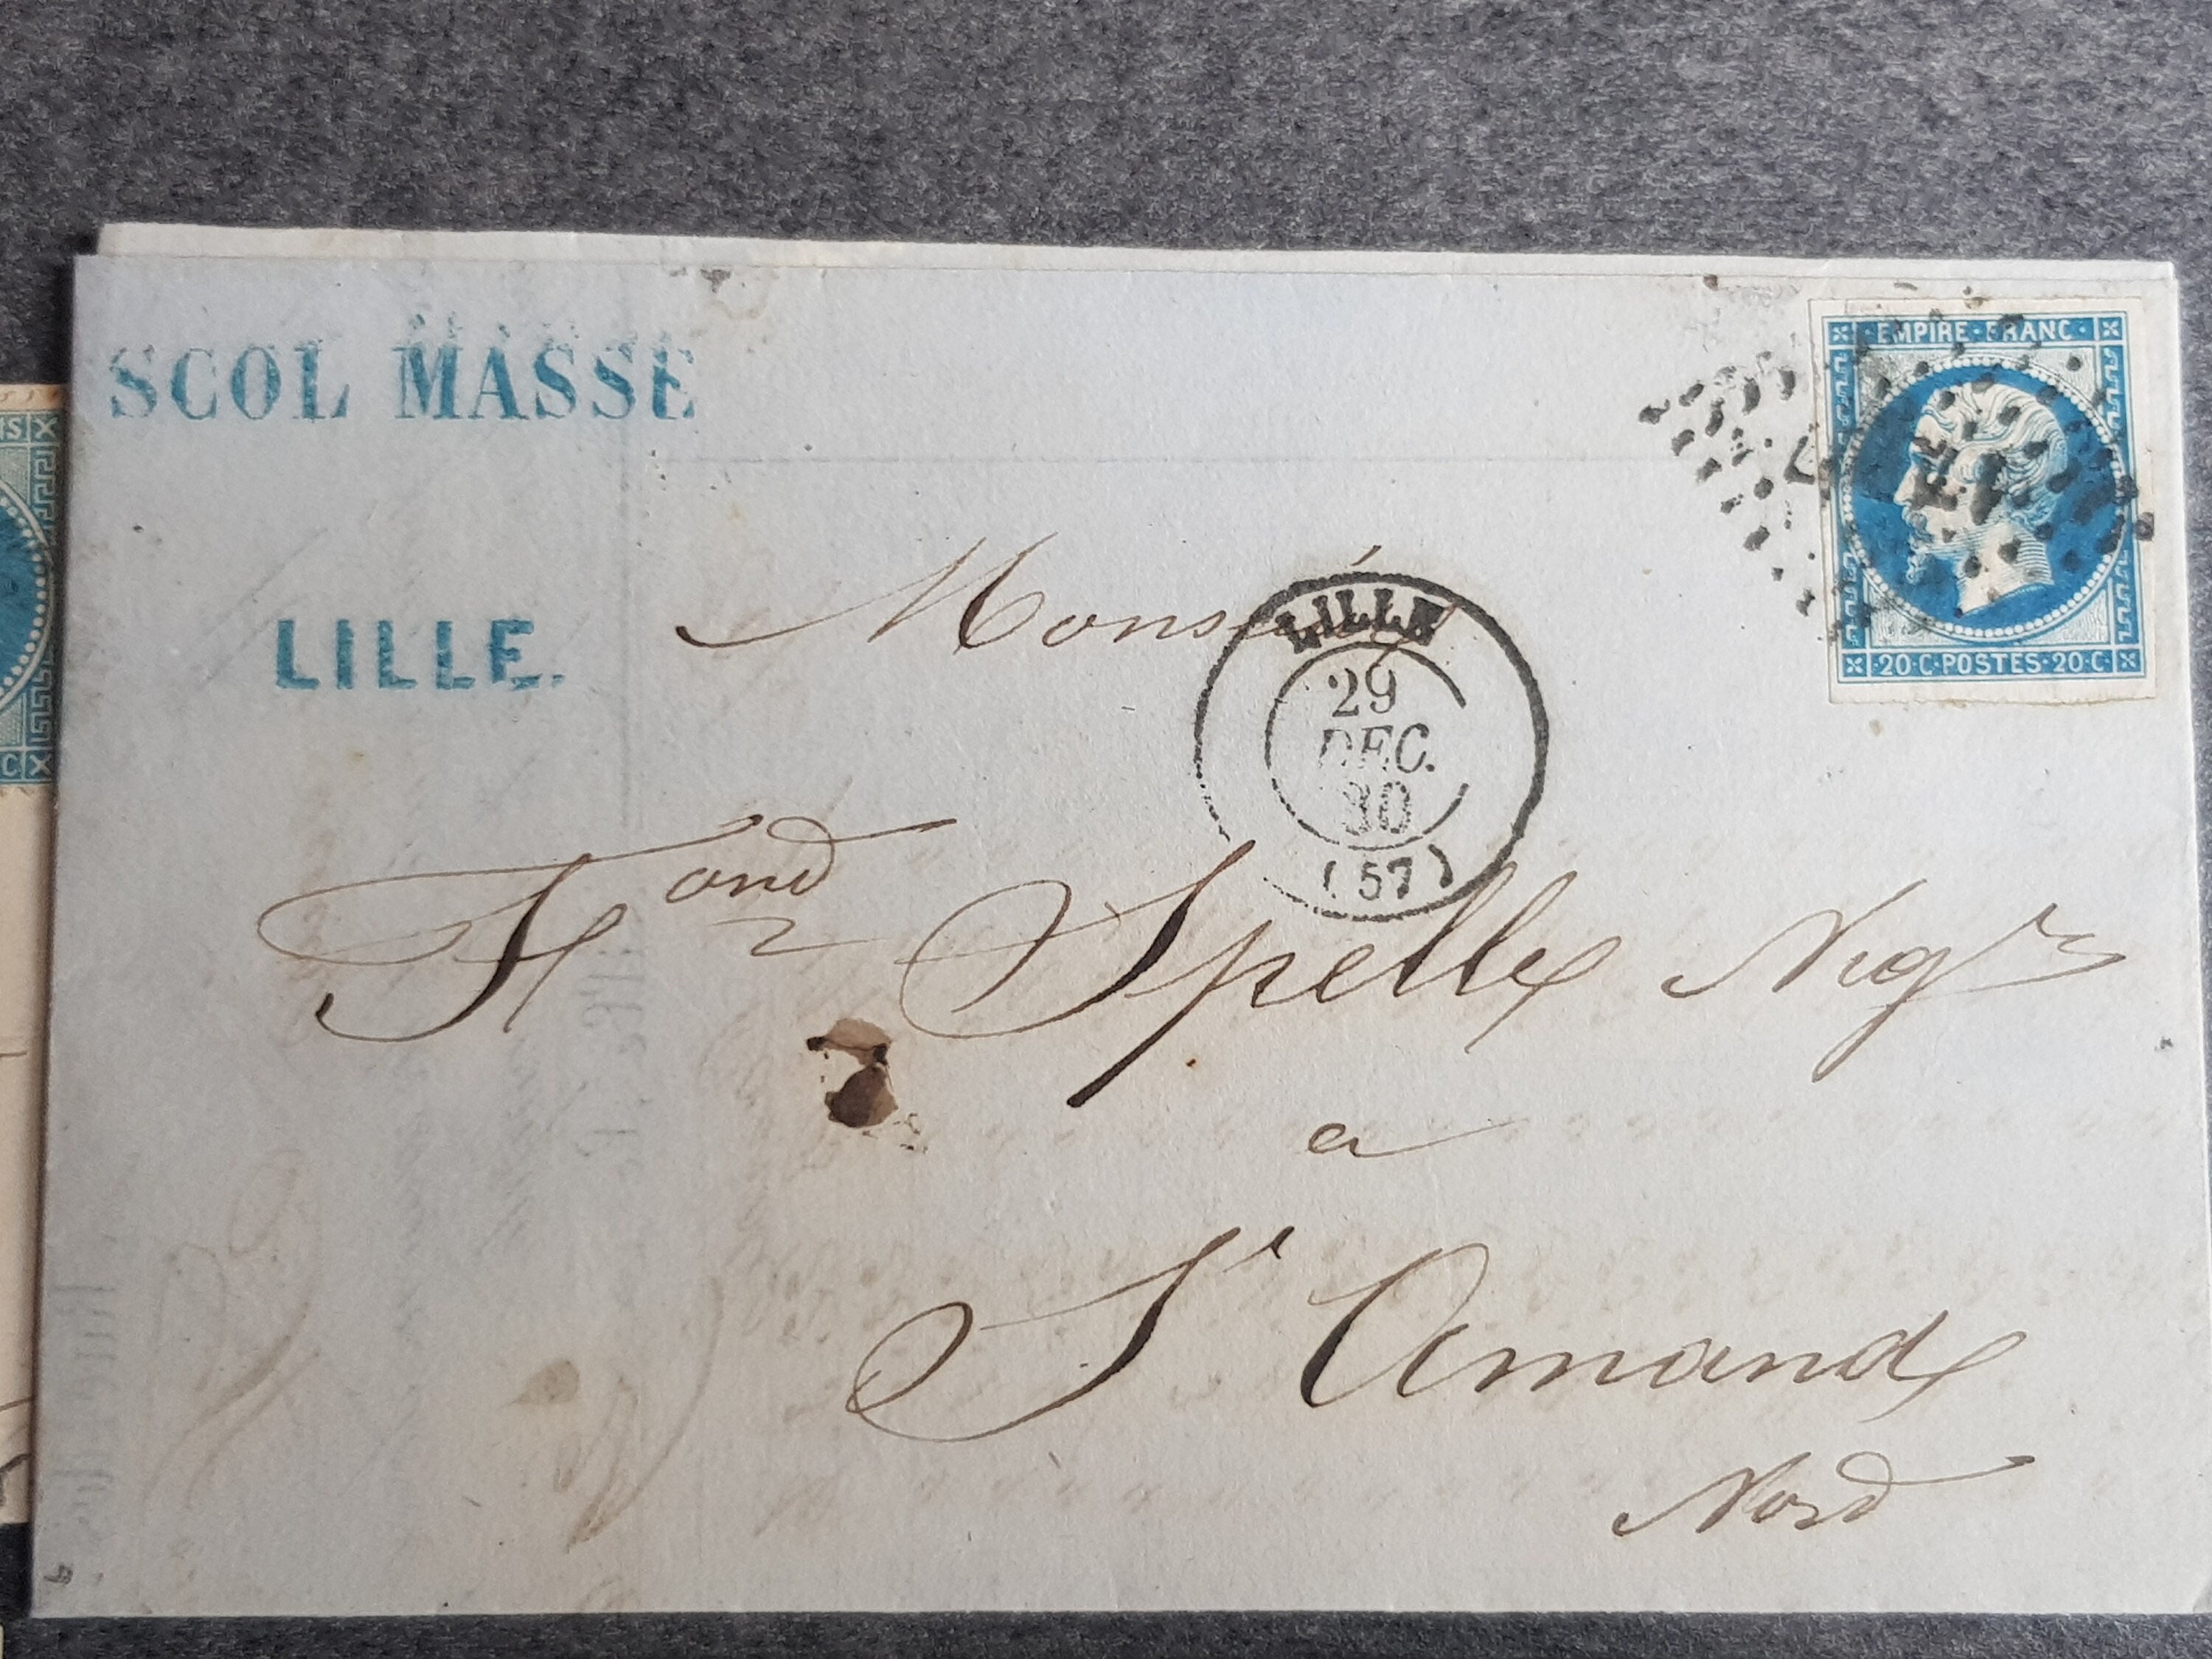 SCOL MASSE
LILLE.
EMPIRE · FRANC ·
· 20 · C · POSTES · 20 · C ·
LILLE
29
DEC.
60
(57)
Monsieur
F^ond Spelle Nég^t
a
S^t Amand
Nord
IS
C